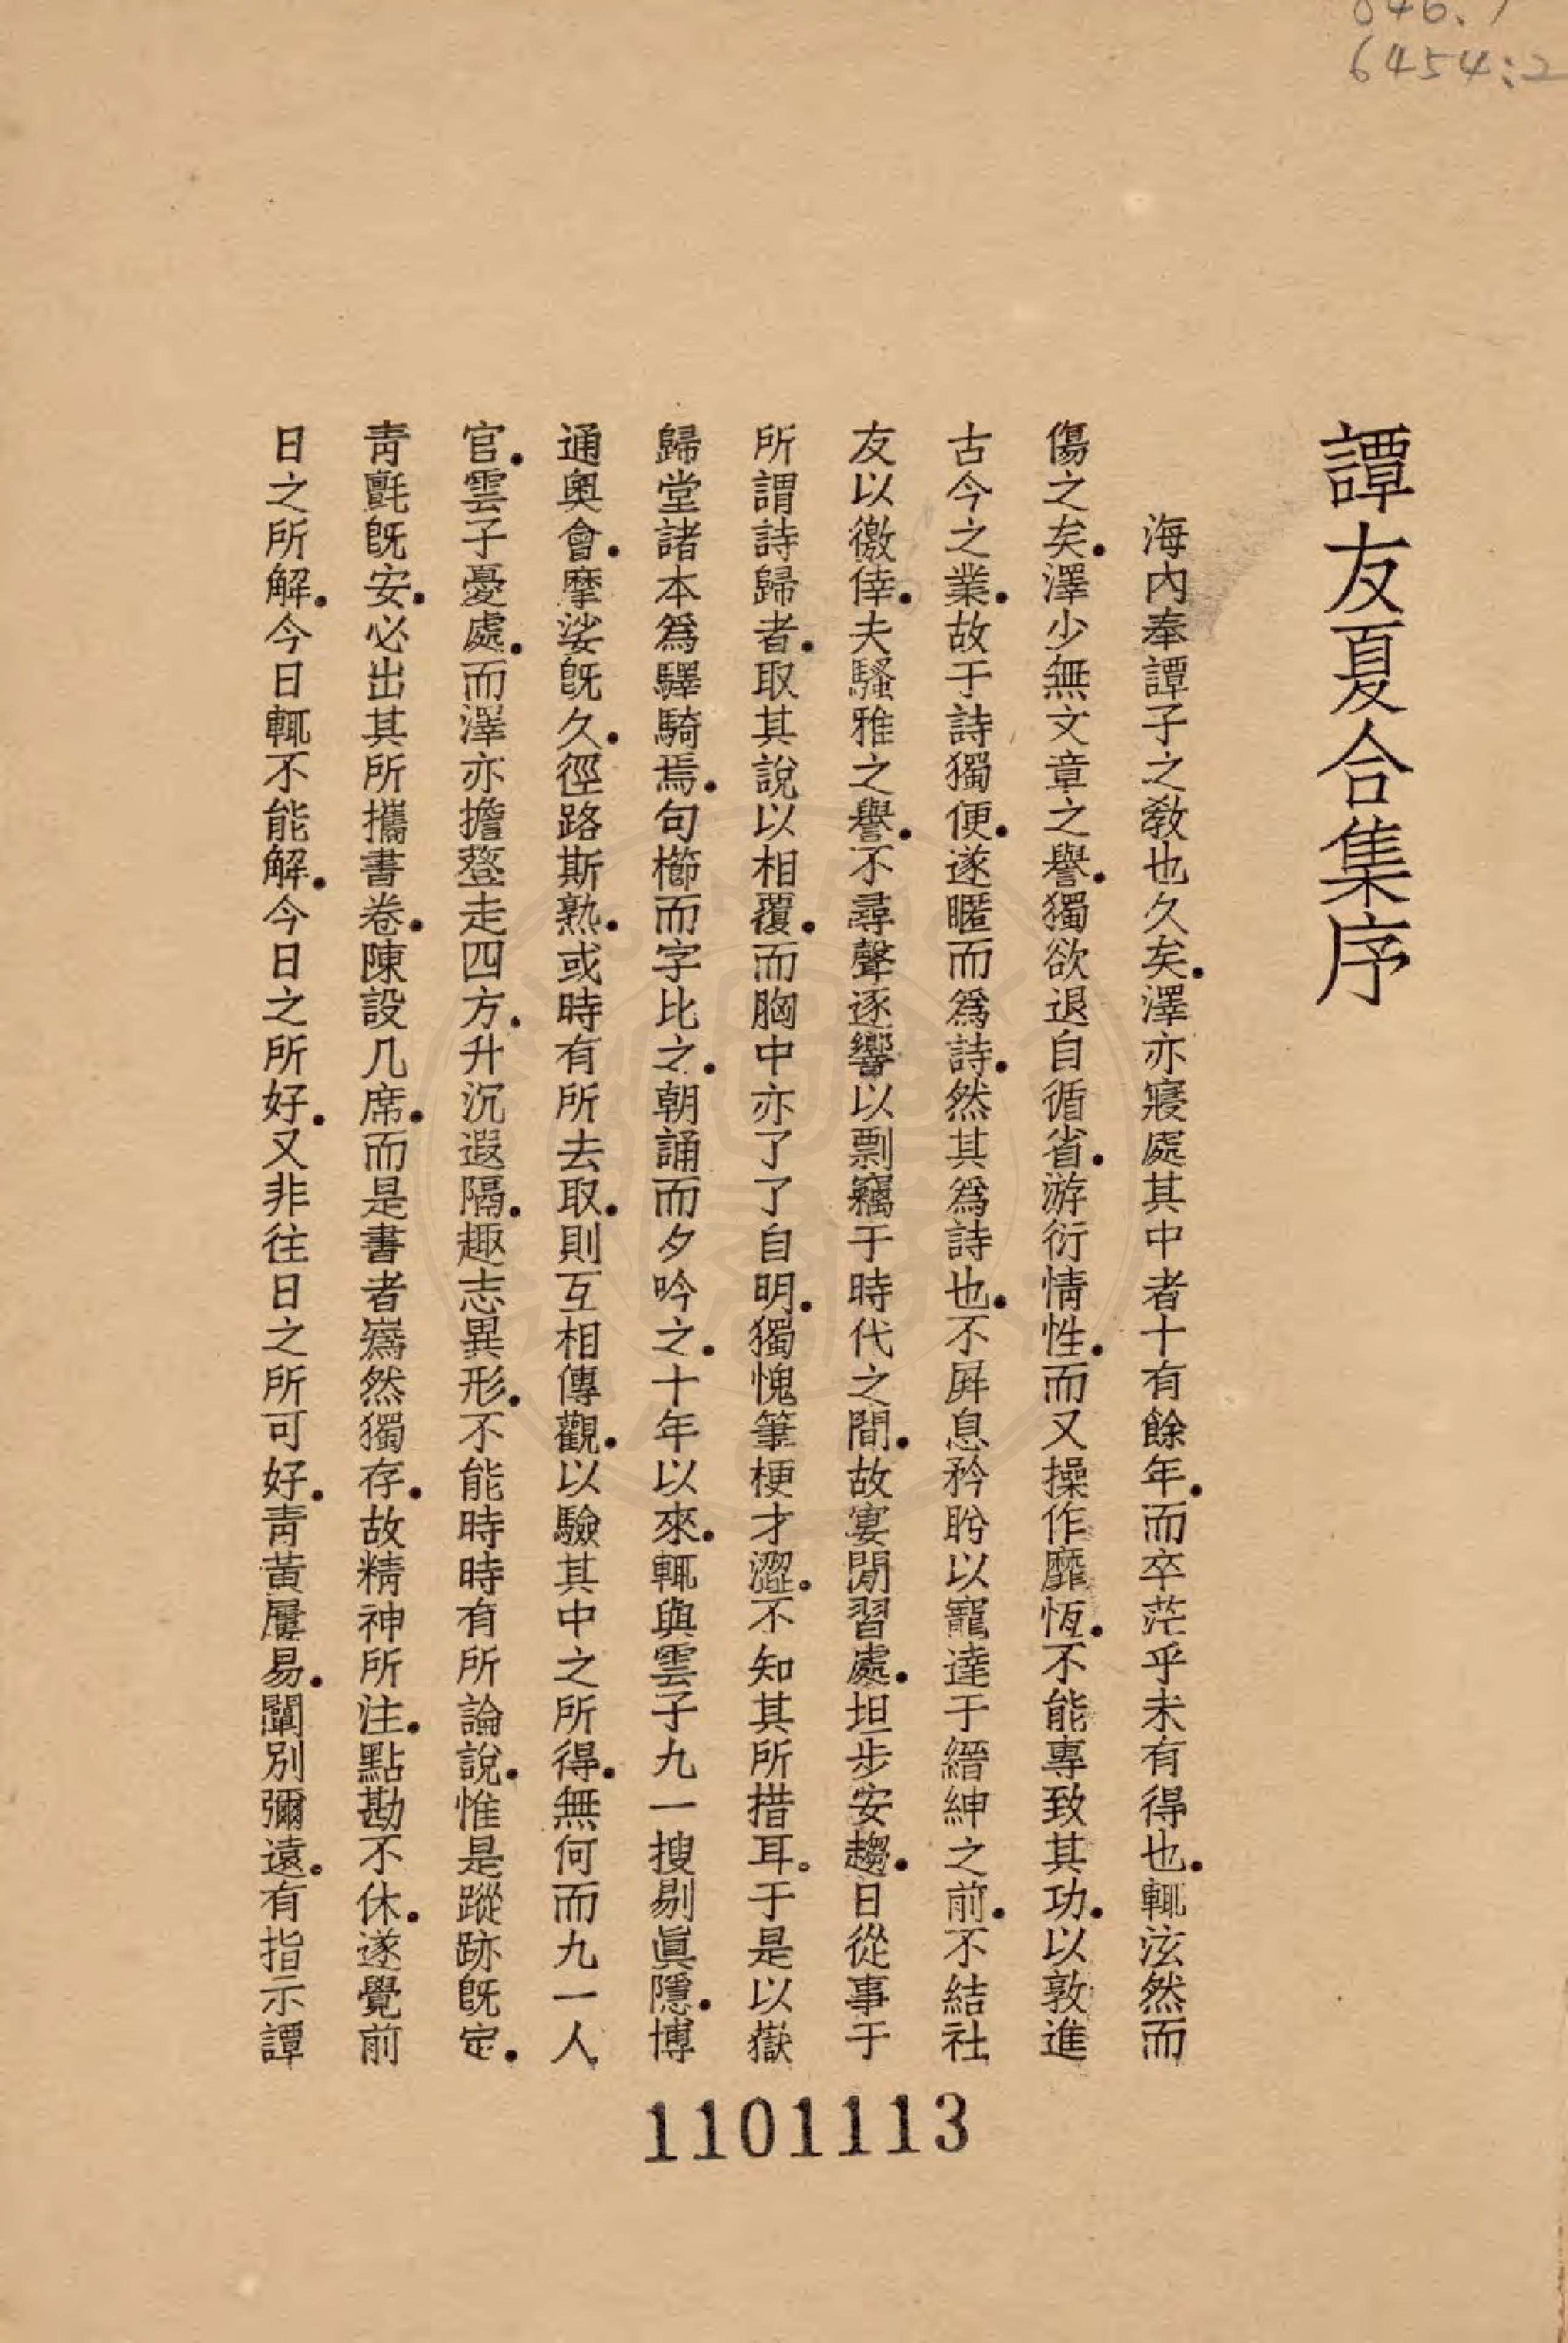 6454:2
譚友夏合集序
海內奉譚子之敎也久矣.澤亦寢處其中者十有餘年.而卒茫乎未有得也.輒泫然而
傷之矣.澤少無文章之譽.獨欲退自循省.游衍情性.而又操作靡恆.不能專致其功.以敦進
古今之業.故于詩獨便.遂暱而爲詩.然其爲詩也.不屛息矜盻以寵達于縉紳之前.不結社
友以徼倖.夫騷雅之譽.不尋聲逐響以剽竊于時代之間.故寔閒習處.坦步安趨.日從事于
所謂詩歸者.取其說以相覆.而胸中亦了了自明.獨愧筆梗才澀.不知其所措耳.于是以嶽
歸堂諸本爲驛騎焉.句櫛而字比之.朝誦而夕吟之.十年以來.輒與雲子九一搜剔眞隱.博
通奧會.摩娑旣久.徑路斯熟.或時有所去取.則互相傳觀.以驗其中之所得.無何而九一人
官.雲子憂處.而澤亦擔簦走四方.升沉遐隔.趣志異形.不能時時有所論說.惟是蹤跡旣定.
靑氈旣安.必出其所攜書卷.陳設几席.而是書者巋然獨存.故精神所注.點勘不休.遂覺前
日之所解.今日輒不能解.今日之所好.又非往日之所可好.靑黃屢易.闡別彌遠.有指示譚
1101113